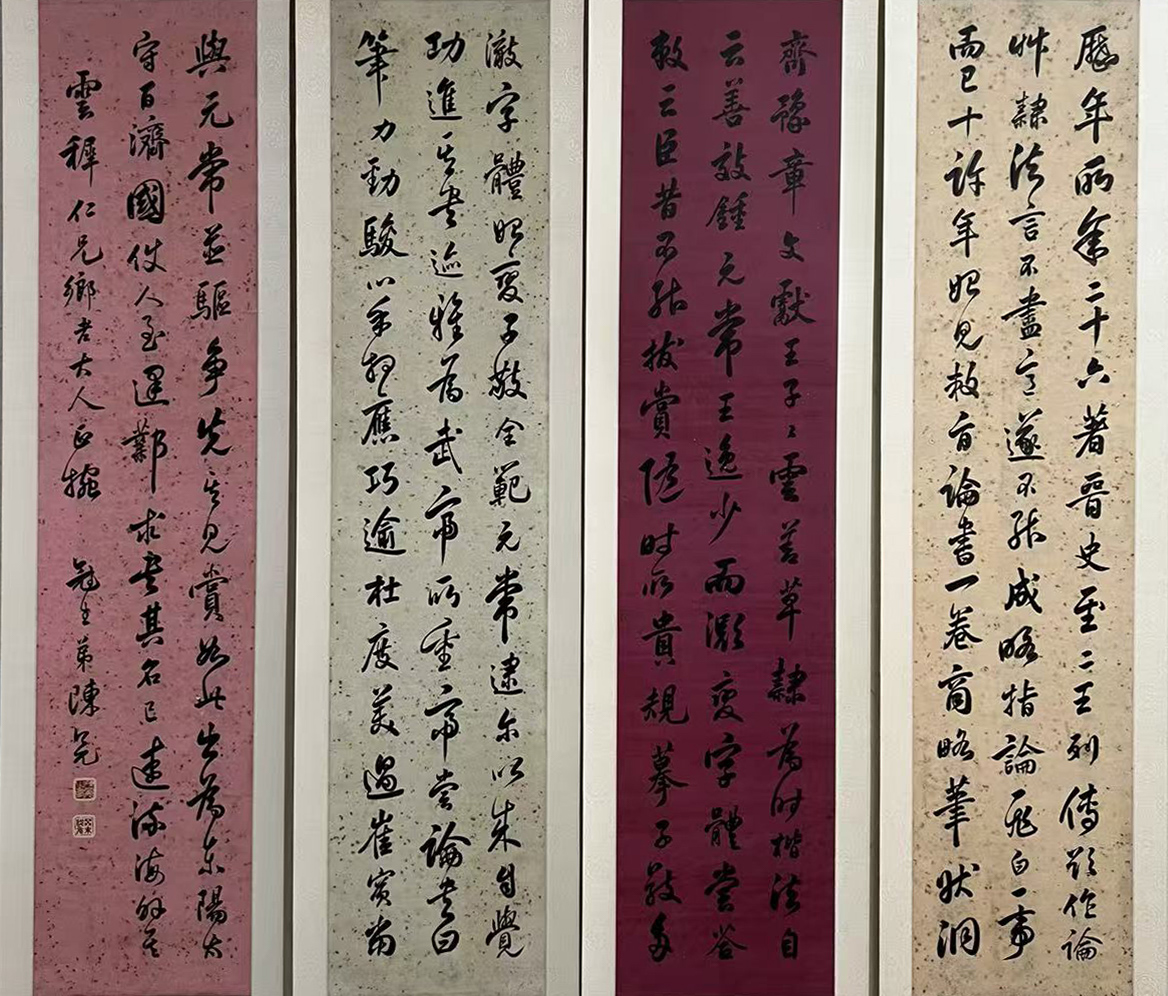 歷年所年二十六著晉史至二王列傳欲作論
艸隸法言不盡意遂不能成略指論飛白一事
而已十許年始見敕旨論書一卷商略筆狀洞
齊豫章文獻王子子雲善草隸為時楷法自
云善效鍾元常王逸少而漸變字體嘗答
敕云臣昔不能拔賞隨時所貴規摹子敬多
澈字體始變子敬全範元常逮尔以來自覺
功進其書迹雅為武帝所重帝嘗論書曰
筆力勁駿心手相應巧逾杜度美過崔寔當
與元常並驅爭先其見賞如此出為東陽太
守百濟國使人至建鄴求書其名已遠流海外
雲穉仁兄鄉老大人正
冠生弟陳冕